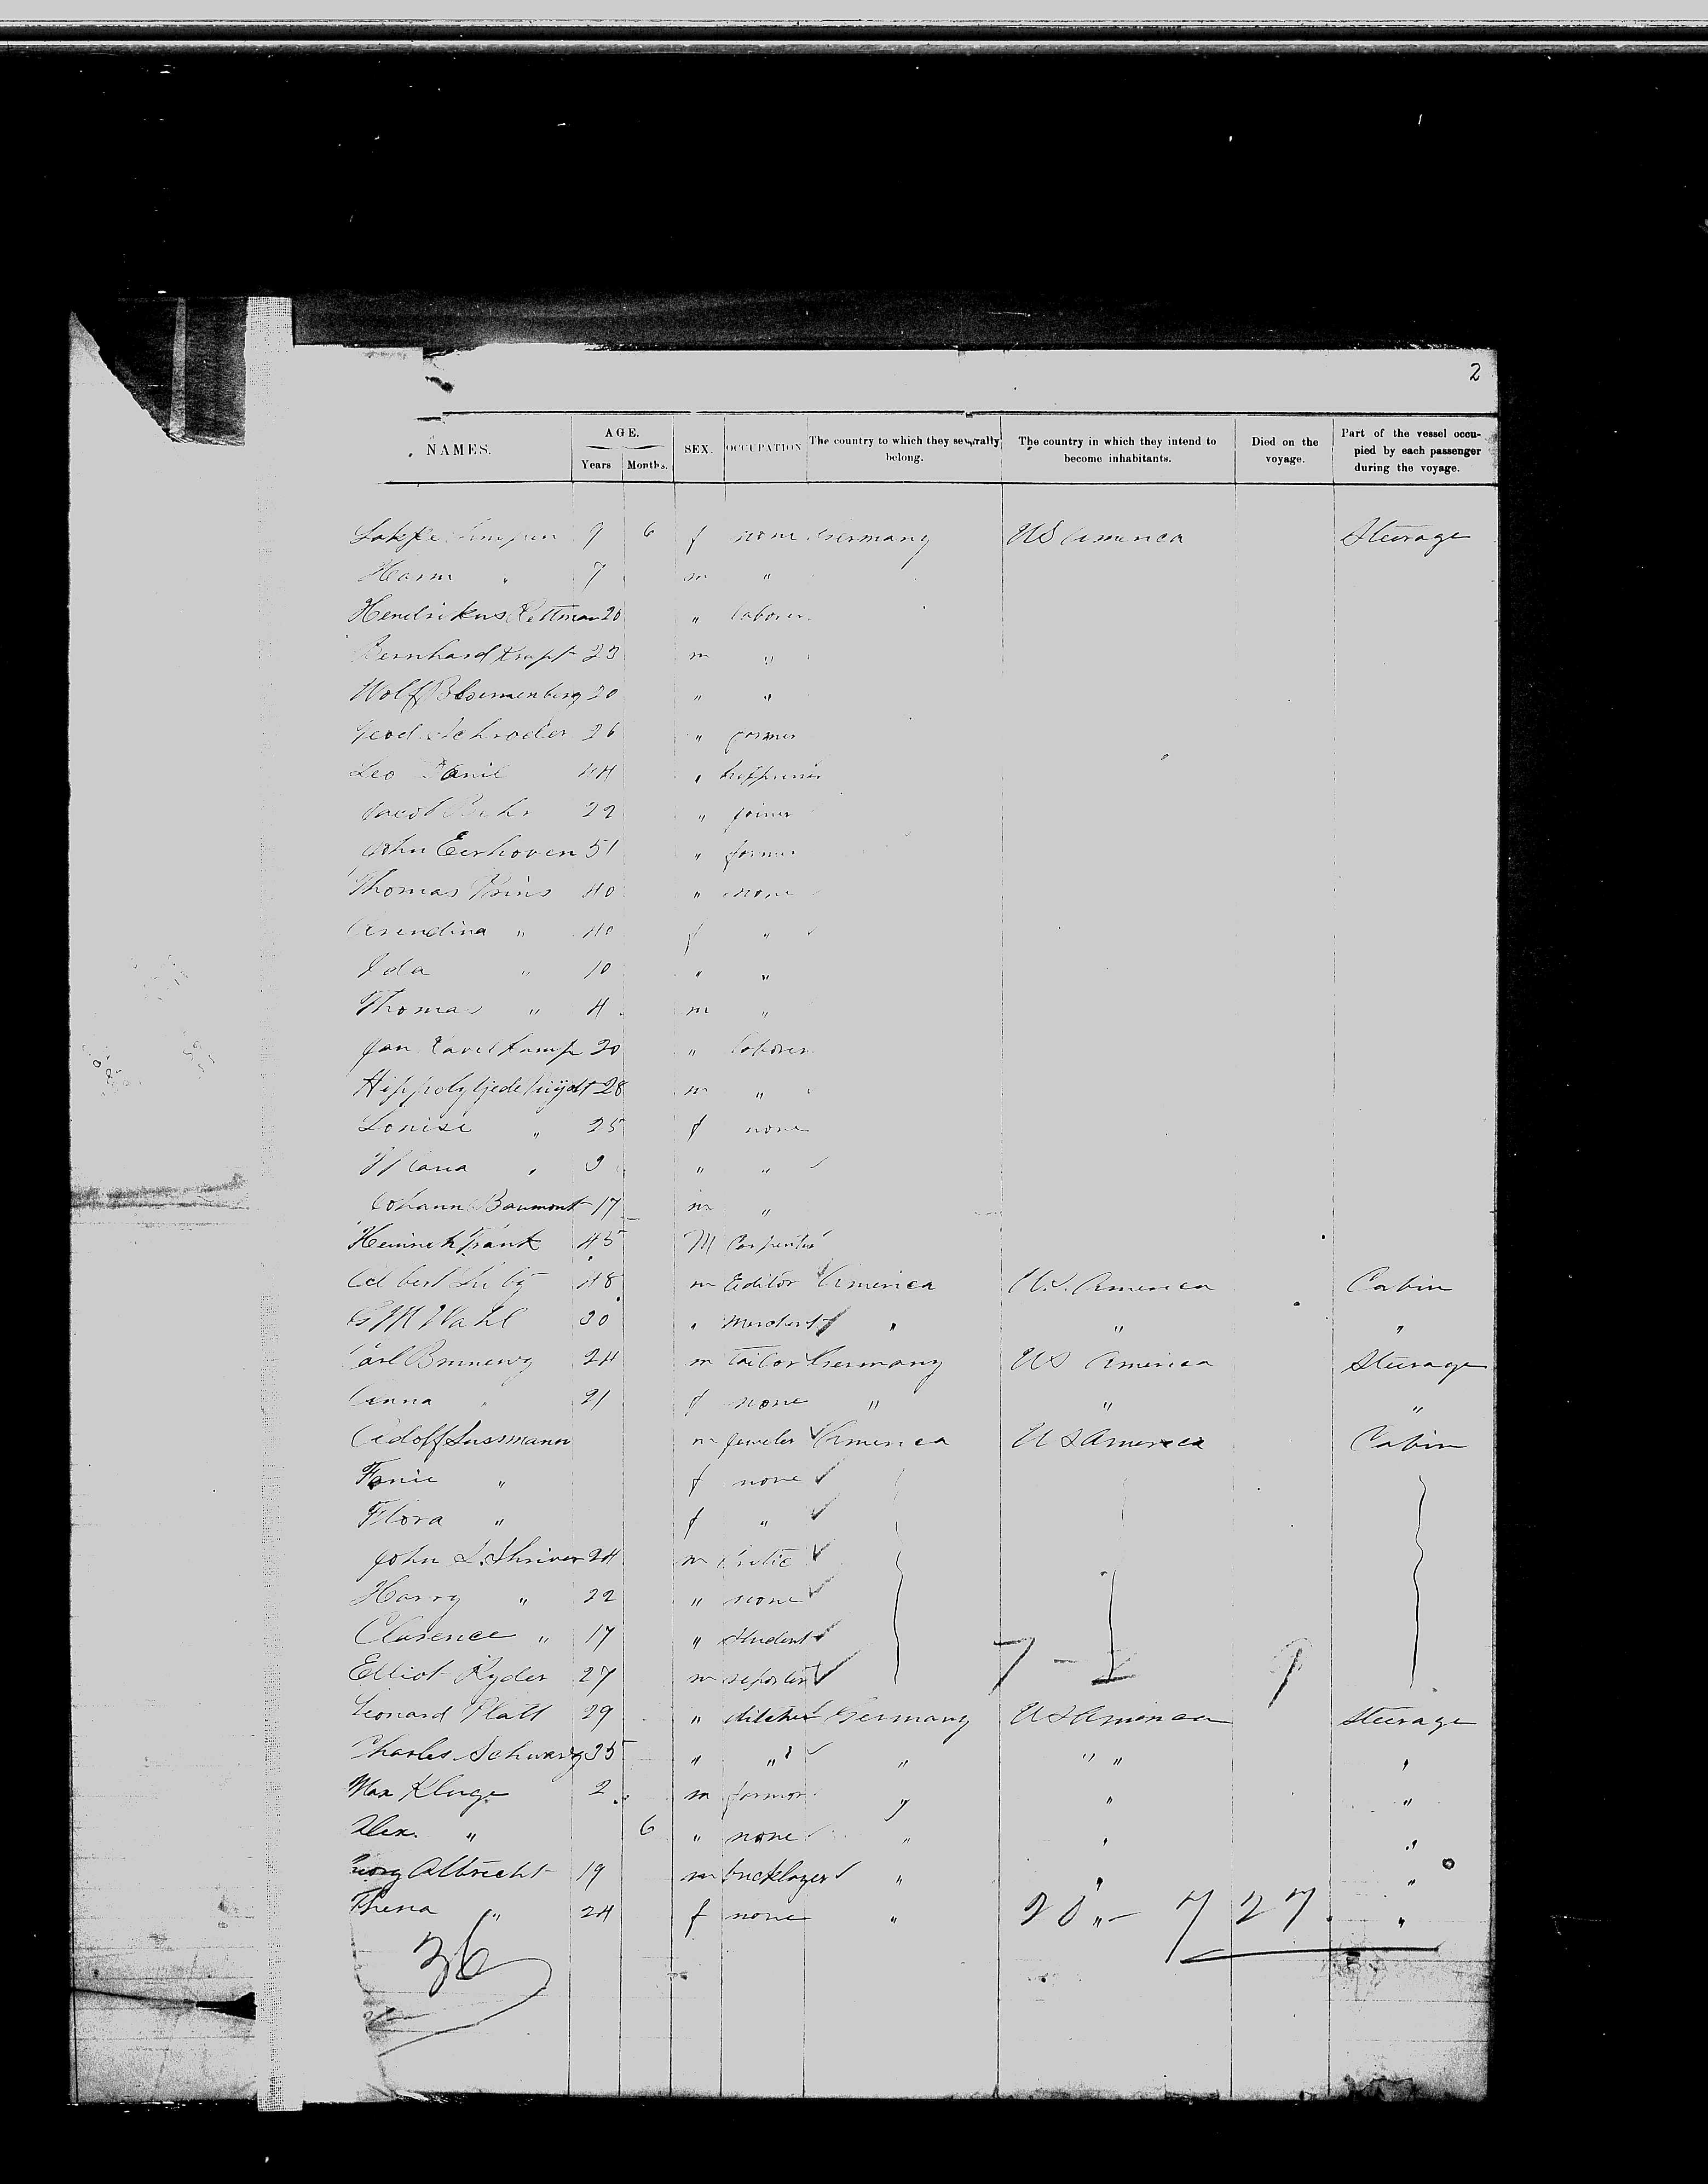 2
NAMES. AGE. Years Months. SEX. OCCUPATION The country to which they severally belong. The country in which they intend to become inhabitants. Died on the voyage. Part of the vessel occupied by each passenger during the voyage.
9 6 f none Germany US America Steerage
Harm " 7 m "
Hendrikus Rettman 20 " laborer
Bernhard 23 m "
Wolf Bloemenberg 20 " "
Schroder 26 " farmer
Leo 44 "
Jacob Behr 22 " joiner
John Eerhoven 51 " farmer
Thomas Prins 40 " none
Arendina " 40 f "
Ida " 10 " "
Thomas " 4 m "
Jan 20 " laborer
28 m "
Louise " 25 f none
Maria " 9 " "
Johann Baumont 17 m "
Heinrich Frank 45 M Carpenter
Albert 48 m Editor America U.S. America Cabin
G M Wahl 30 " Merchant " " "
Carl 24 m Tailor Germany US America Steerage
Anna " 21 f none " " "
Adolf Sussmann m Jeweler America US America Cabin
Fanie " f none
Flora " f "
John L. Shriver 24 m
Harry " 22 " none
Clarence " 17 " Student
Elliot Ryder 27 m reporter 7 - 2 9
Leonard Platt 29 " Germany US America Steerage
Charles Schwarz 35 " " " " " "
Max Kluge 2 m farmer " " "
Alex. " 6 " none " " "
Georg Albrecht 19 m bricklayer " " "
Thera " 24 f none " 20 " - 7 27 "
36